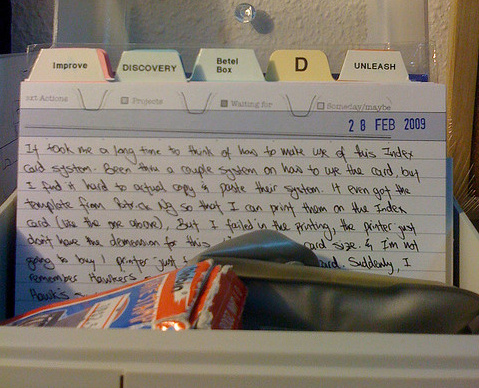 Improve DISCOVERY Betel Box D UNLEASH
ext Actions Projects Waiting for Someday/maybe
28 FEB 2009
It took me a long time to think of how to make use of this Index
card system. Been thru a couple system on how to use the card, but
I find it hard to actual copy & paste their system. It even got the
template from Patrick Ng so that I can print them on the Index
card (like the one above), But I failed in the printing, the printer just
don't have the demension for this card size. & I'm not
going to buy 1 printer just card. Suddenly, I
remember Hawker's
Hawk's